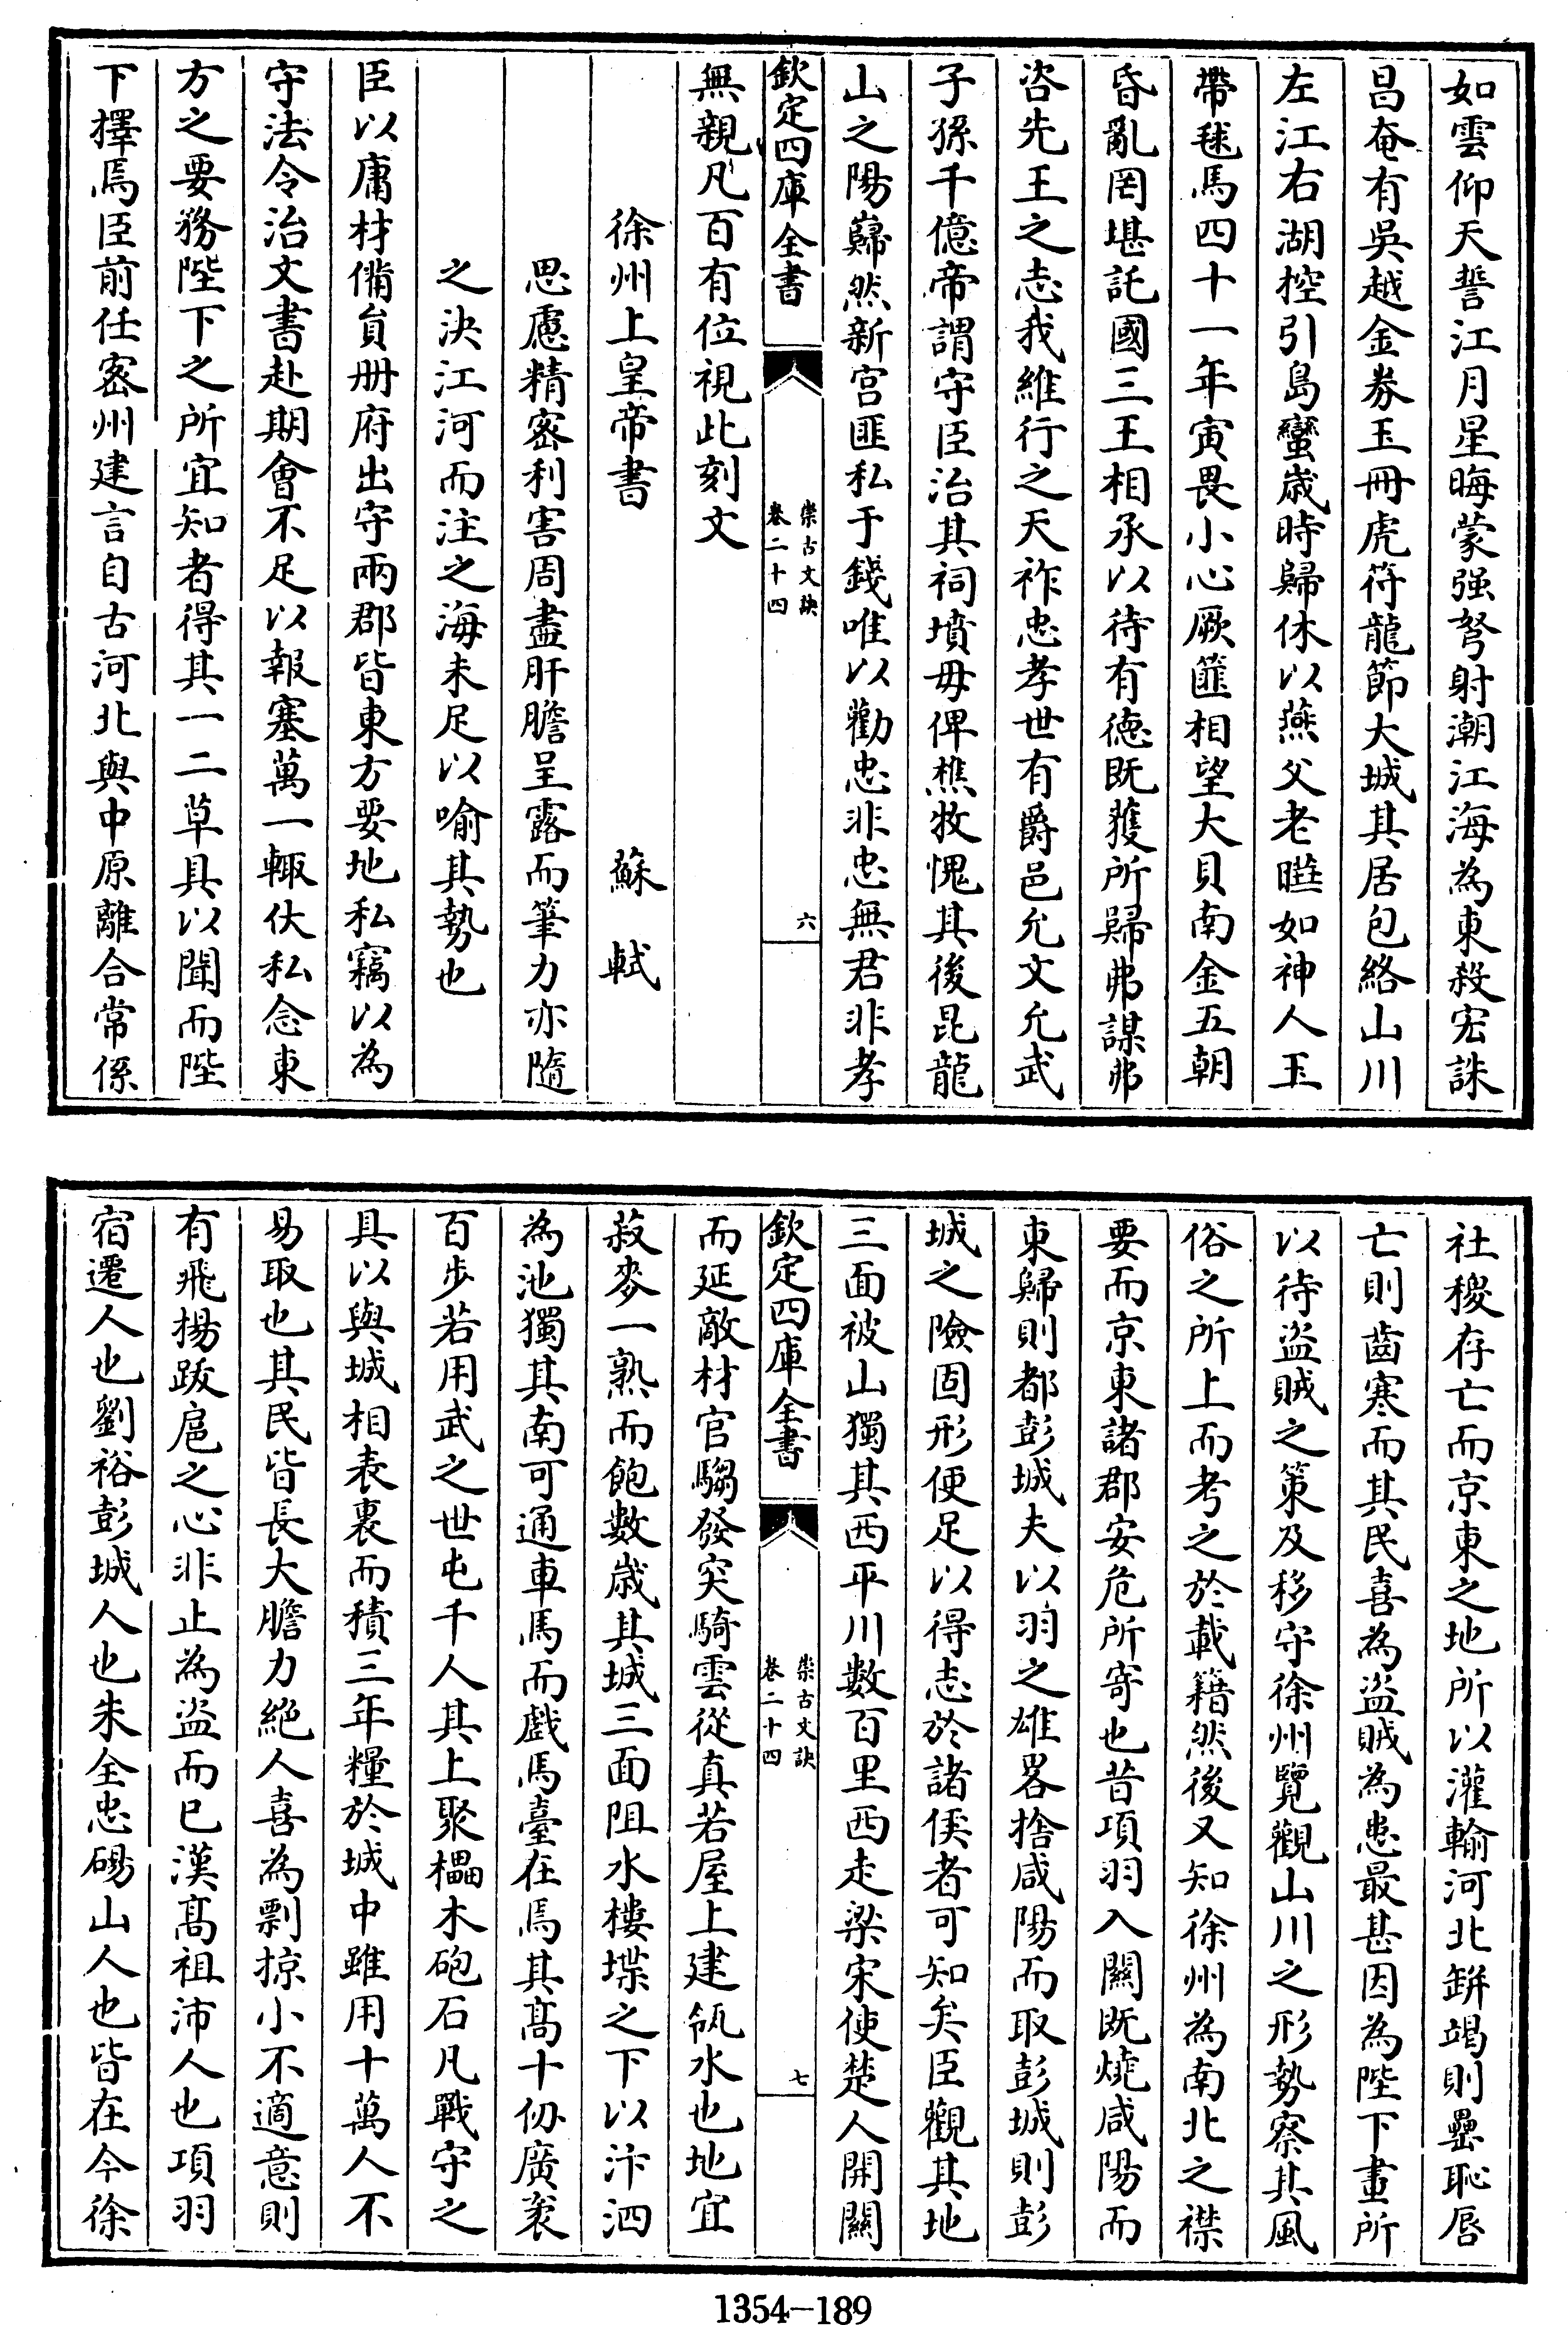 如雲仰天誓江月星晦蒙强弩射潮江海為東殺宏誅
昌奄有吳越金劵玉冊虎符龍節大城其居包絡山川
左江右湖控引島蠻歳時歸休以燕父老曄如神人玉
帶毬馬四十一年寅畏小心厥篚相望大貝南金五朝
昏亂罔堪託國三王相承以待有徳既獲所歸弗謀弗
咨先王之志我維行之天祚忠孝世有爵邑允文允武
子孫千億帝謂守臣治其祠墳毋俾樵牧愧其後昆龍
山之陽巋然新宫匪私于錢唯以勸忠非忠無君非孝
欽定四庫全書
崇古文訣
卷二十四
六
無親凡百有位視此刻文
徐州上皇帝書
蘇軾
思慮精宻利害周盡肝膽呈露而筆力亦隨
之決江河而注之海未足以喻其勢也
臣以庸材備員册府出守兩郡皆東方要地私竊以為
守法令治文書赴期會不足以報塞萬一輒伏私念東
方之要務陛下之所宜知者得其一二草具以聞而陛
下擇焉臣前任宻州建言自古河北與中原離合常係
社稷存亡而京東之地所以灌輸河北缾竭則罍恥唇
亡則齒寒而其民喜為盜賊為患最甚因為陛下畫所
以待盜賊之策及移守徐州覽觀山川之形勢察其風
俗之所上而考之於載籍然後又知徐州為南北之襟
要而京東諸郡安危所寄也昔項羽入闗既燒咸陽而
東歸則都彭城夫以羽之雄畧捨咸陽而取彭城則彭
城之險固形便足以得志於諸侯者可知矣臣觀其地
三面被山獨其西平川數百里西走梁宋使楚人開闗
欽定四庫全書
崇古文訣
卷二十四
七
而延敵材官騶發突騎雲從真若屋上建瓴水也地宜
菽麥一熟而飽數歳其城三面阻水樓堞之下以汴泗
為池獨其南可通車馬而戲馬臺在焉其髙十仞廣袤
百步若用武之世屯千人其上聚櫑木砲石凡戰守之
具以與城相表裏而積三年糧於城中雖用十萬人不
易取也其民皆長大膽力絶人喜為剽掠小不適意則
有飛揚跋扈之心非止為盜而已漢髙祖沛人也項羽
宿遷人也劉裕彭城人也朱全忠碭山人也皆在今徐
1354—189